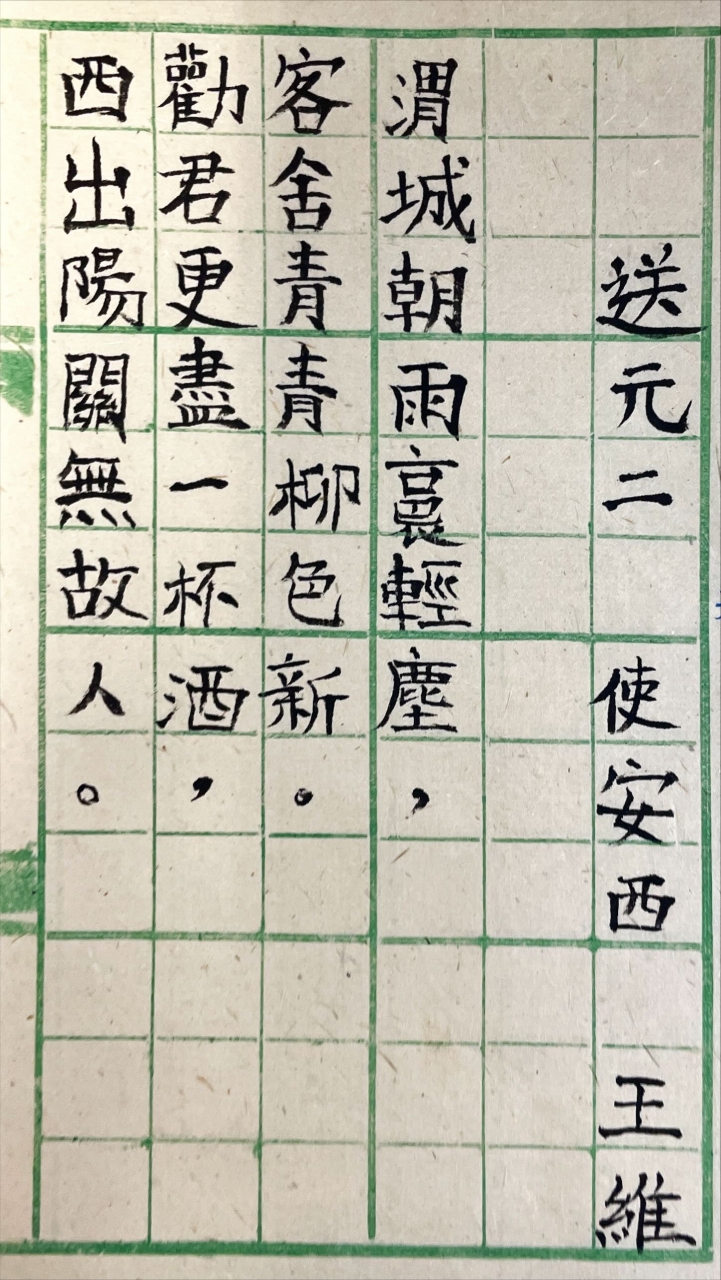 送元二　使安西　王維
渭城朝雨裛輕塵，
客舍青青柳色新。
勸君更盡一杯酒，
西出陽關無故人。